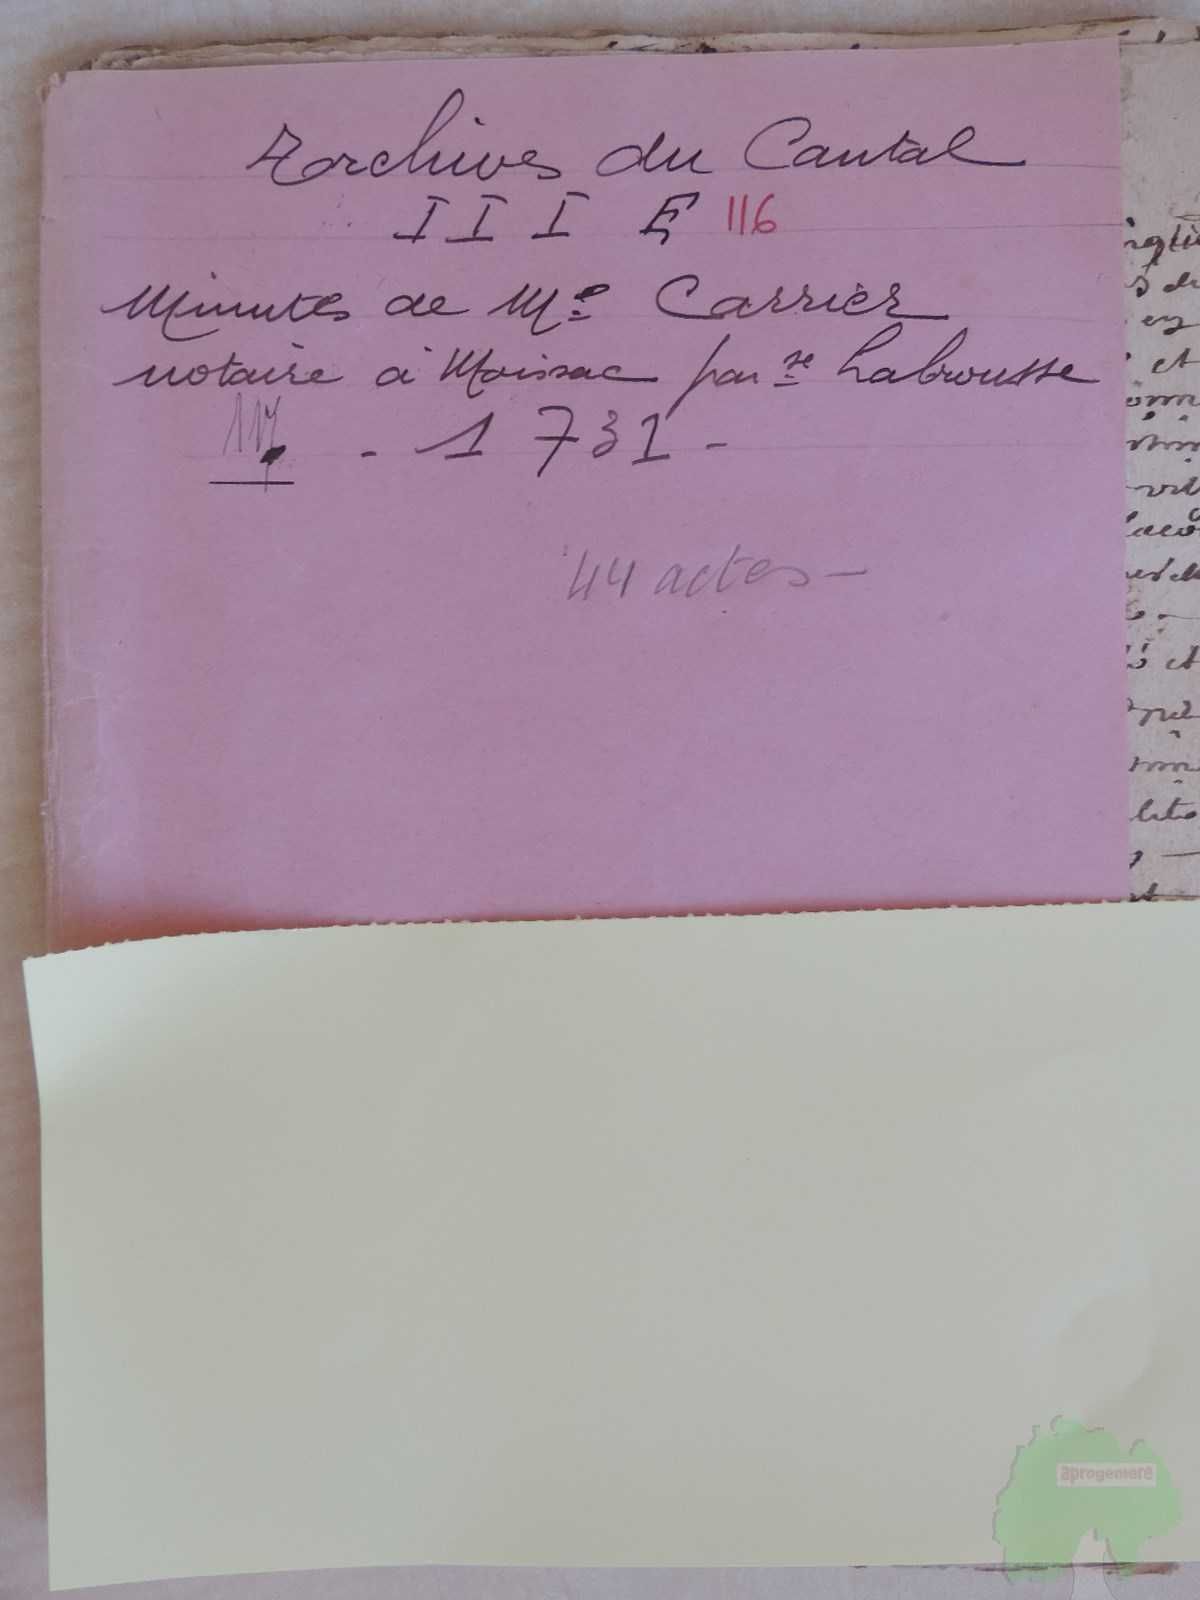 Archives du Cantal
III E 116
Minutes de Me Carrier
notaire à Moissac par se Labrousse
117 - 1731 -
44 actes -
aprogemere